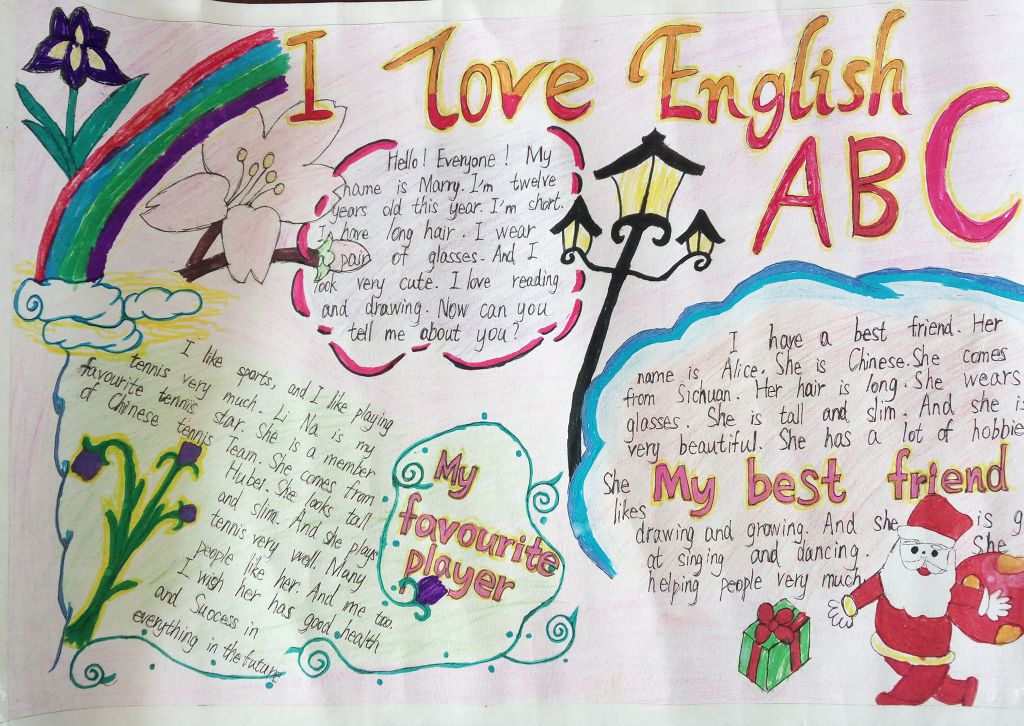 I love English
ABC
Hello! Everyone! My
name is Marry. I'm twelve
years old this year. I'm short.
I have long hair. I wear
a pair of glasses. And I
look very cute. I love reading
and drawing. Now can you
tell me about you?
I like sports, and I like playing
tennis very much. Li Na is my
favourite tennis star. She is a member
of Chinese tennis Team. She comes from
Hubei. She looks tall
and slim. And she plays
tennis very well. Many
people like her. And me too
I wish her has good health
and Success in
everything in the future
My
favourite
player
I have a best friend. Her
name is Alice. She is Chinese. She comes
from Sichuan. Her hair is long. She wears
glasses. She is tall and slim. And she is
very beautiful. She has a lot of hobbie
My best friend
She
likes
drawing and growing. And she is g
at singing and dancing. She
helping people very much